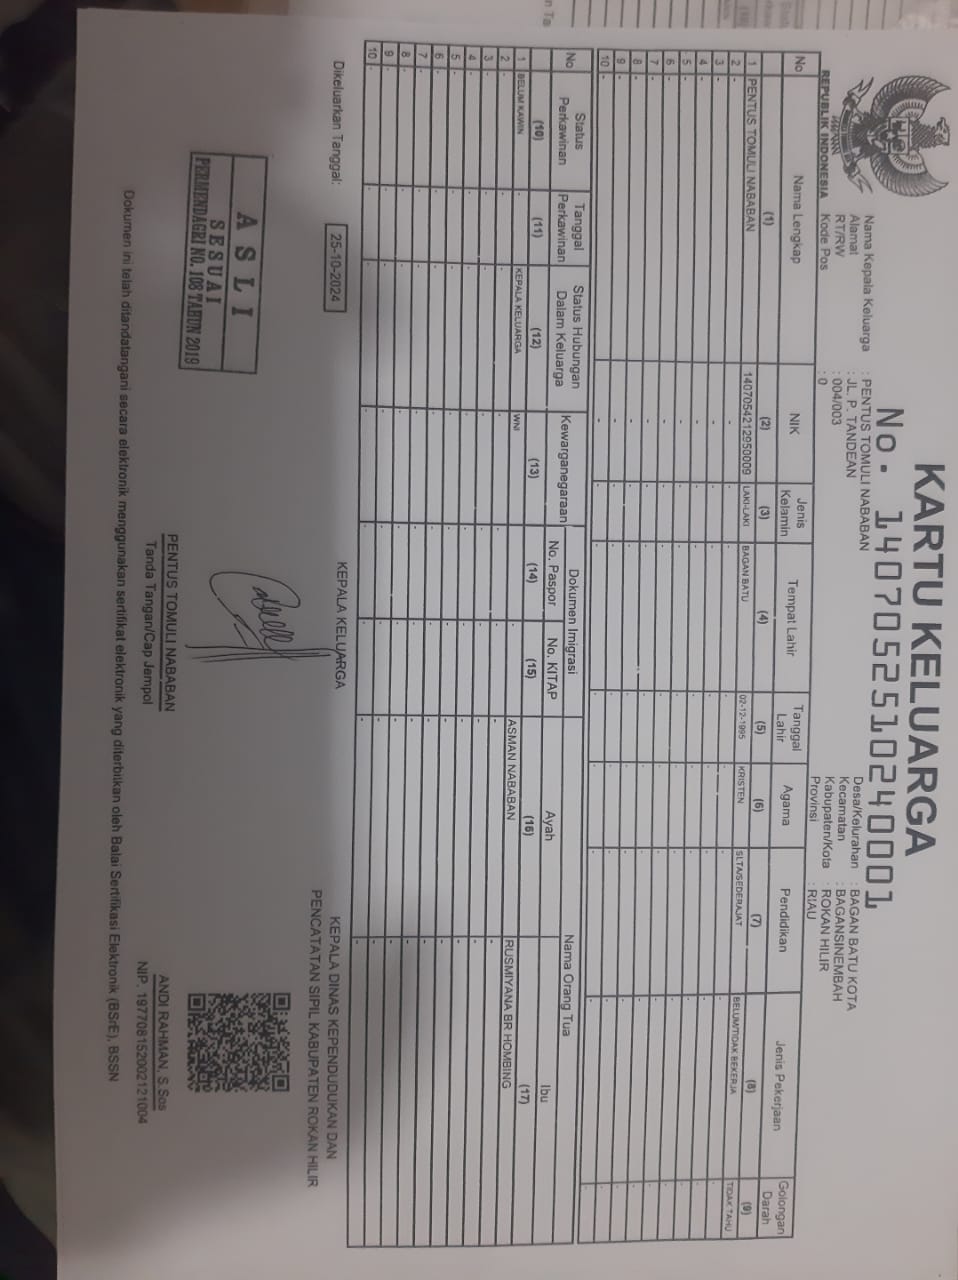 KARTU KELUARGA
No. 1407052510240001
REPUBLIK INDONESIA
Nama Kepala Keluarga : PENTUS TOMULI NABABAN
Alamat : JL. P. TANDEAN
RT/RW : 004/003
Kode Pos : 0
Desa/Kelurahan : BAGAN BATU KOTA
Kecamatan : BAGANSINEMBAH
Kabupaten/Kota : ROKAN HILIR
Provinsi : RIAU
No Nama Lengkap NIK Jenis Kelamin Tempat Lahir Tanggal Lahir Agama Pendidikan Jenis Pekerjaan Golongan Darah
(1) (2) (3) (4) (5) (6) (7) (8) (9)
1 PENTUS TOMULI NABABAN 1407054212950009 LAKI-LAKI BAGAN BATU 02-12-1995 KRISTEN SLTA/SEDERAJAT BELUM/TIDAK BEKERJA TIDAK TAHU
2 - - - - - - - - -
3 - - - - - - - - -
4 - - - - - - - - -
5 - - - - - - - - -
6 - - - - - - - - -
7 - - - - - - - - -
8 - - - - - - - - -
9 - - - - - - - - -
10 - - - - - - - - -
No Status Perkawinan Tanggal Perkawinan Status Hubungan Dalam Keluarga Kewarganegaraan Dokumen Imigrasi Nama Orang Tua
No. Paspor No. KITAP Ayah Ibu
(10) (11) (12) (13) (14) (15) (16) (17)
1 BELUM KAWIN - KEPALA KELUARGA WNI - - ASMAN NABABAN RUSMIYANA BR HOMBING
2 - - - - - - - -
3 - - - - - - - -
4 - - - - - - - -
5 - - - - - - - -
6 - - - - - - - -
7 - - - - - - - -
8 - - - - - - - -
9 - - - - - - - -
10 - - - - - - - -
Dikeluarkan Tanggal: 25-10-2024
KEPALA KELUARGA
KEPALA DINAS KEPENDUDUKAN DAN
PENCATATAN SIPIL KABUPATEN ROKAN HILIR
ASLI
SESUAI
PERMENDAGRI NO. 108 TAHUN 2019
PENTUS TOMULI NABABAN
Tanda Tangan/Cap Jempol
ANDI RAHMAN, S.Sos
NIP. 197708152002121004
Dokumen ini telah ditandatangani secara elektronik menggunakan sertifikat elektronik yang diterbitkan oleh Balai Sertifikasi Elektronik (BSrE), BSSN